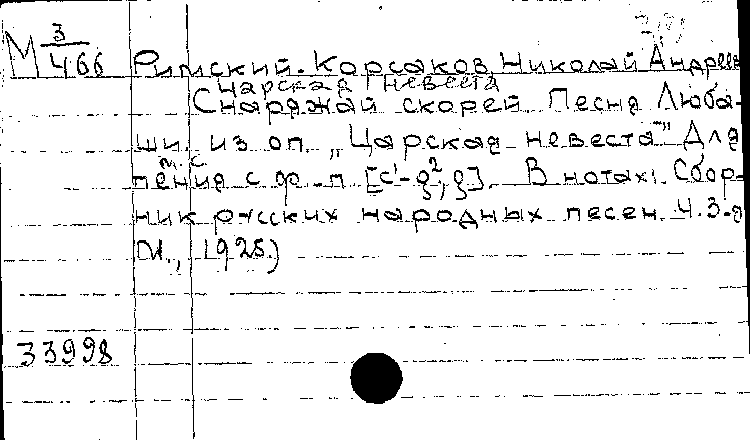 М 3/466
Римский-Корсаков Николай Андреев
Царская невеста
Снаряжай скорей. Песня Люба-
ши из оп. „Царская невеста" Для
м.с.
пения с ф-п [c¹-g², g]. В нотах: Сбор-
ник русских народных песен. Ч. 3-я
М., 1925.)
33998